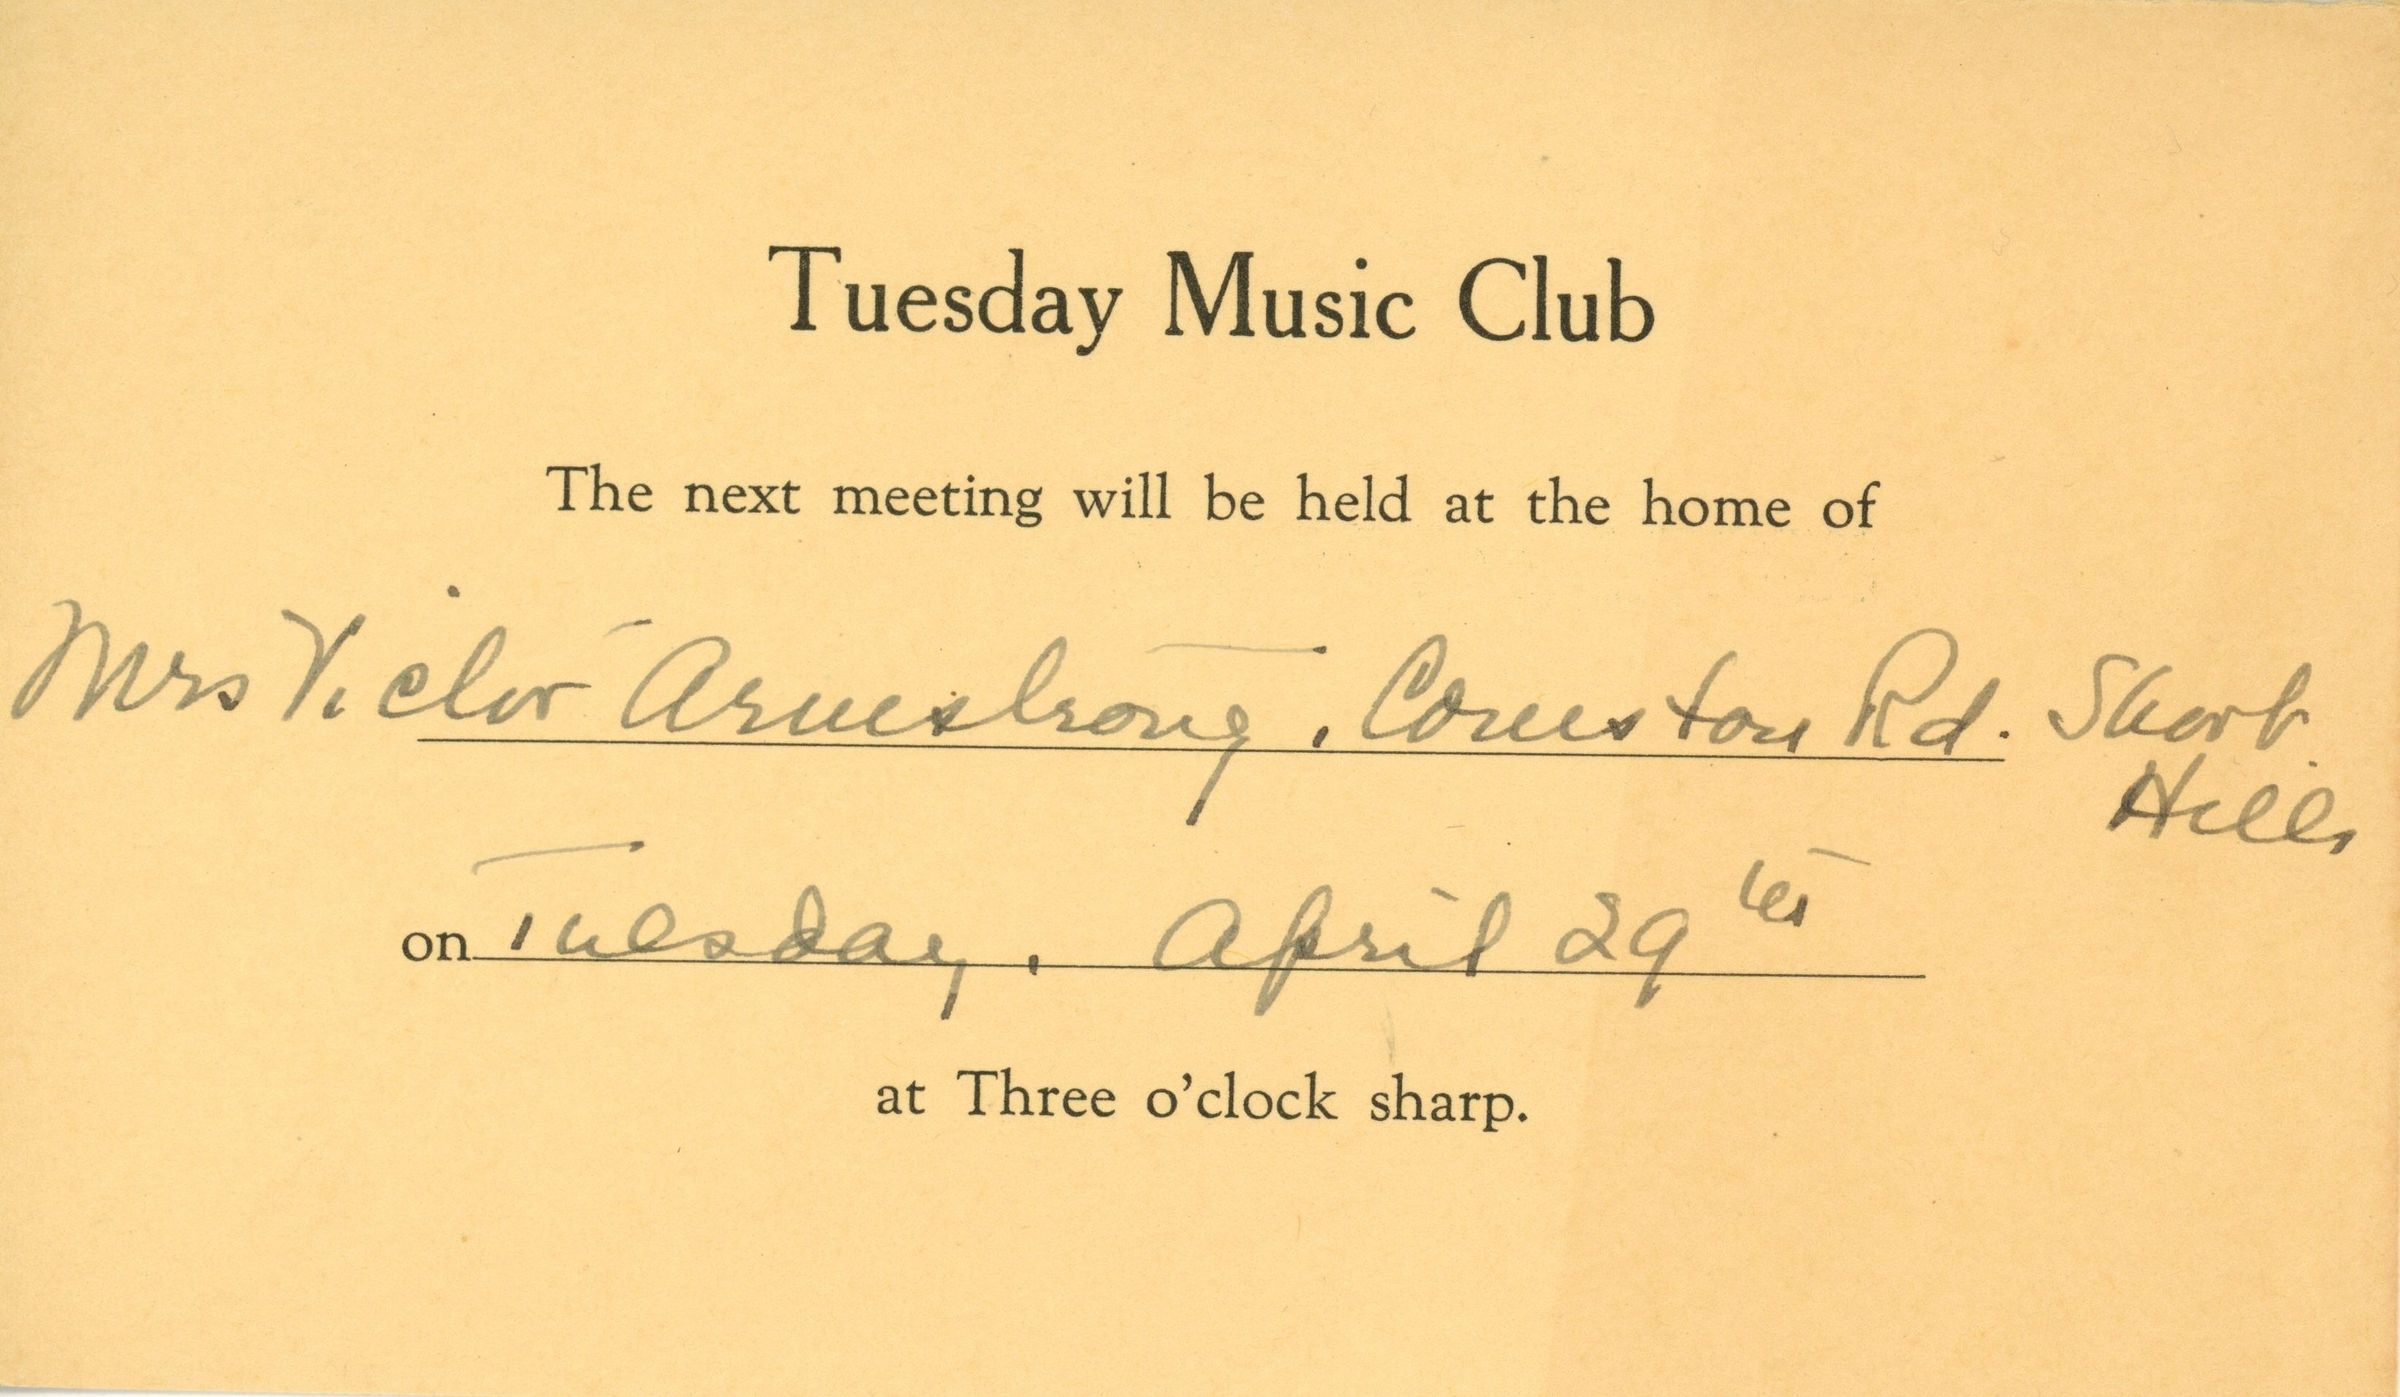 Tuesday Music Club
The next meeting will be held at the home of
Mrs Victor Armstrong, Comston Rd. Short
Hills
on Tuesday, April 29th
at Three o'clock sharp.